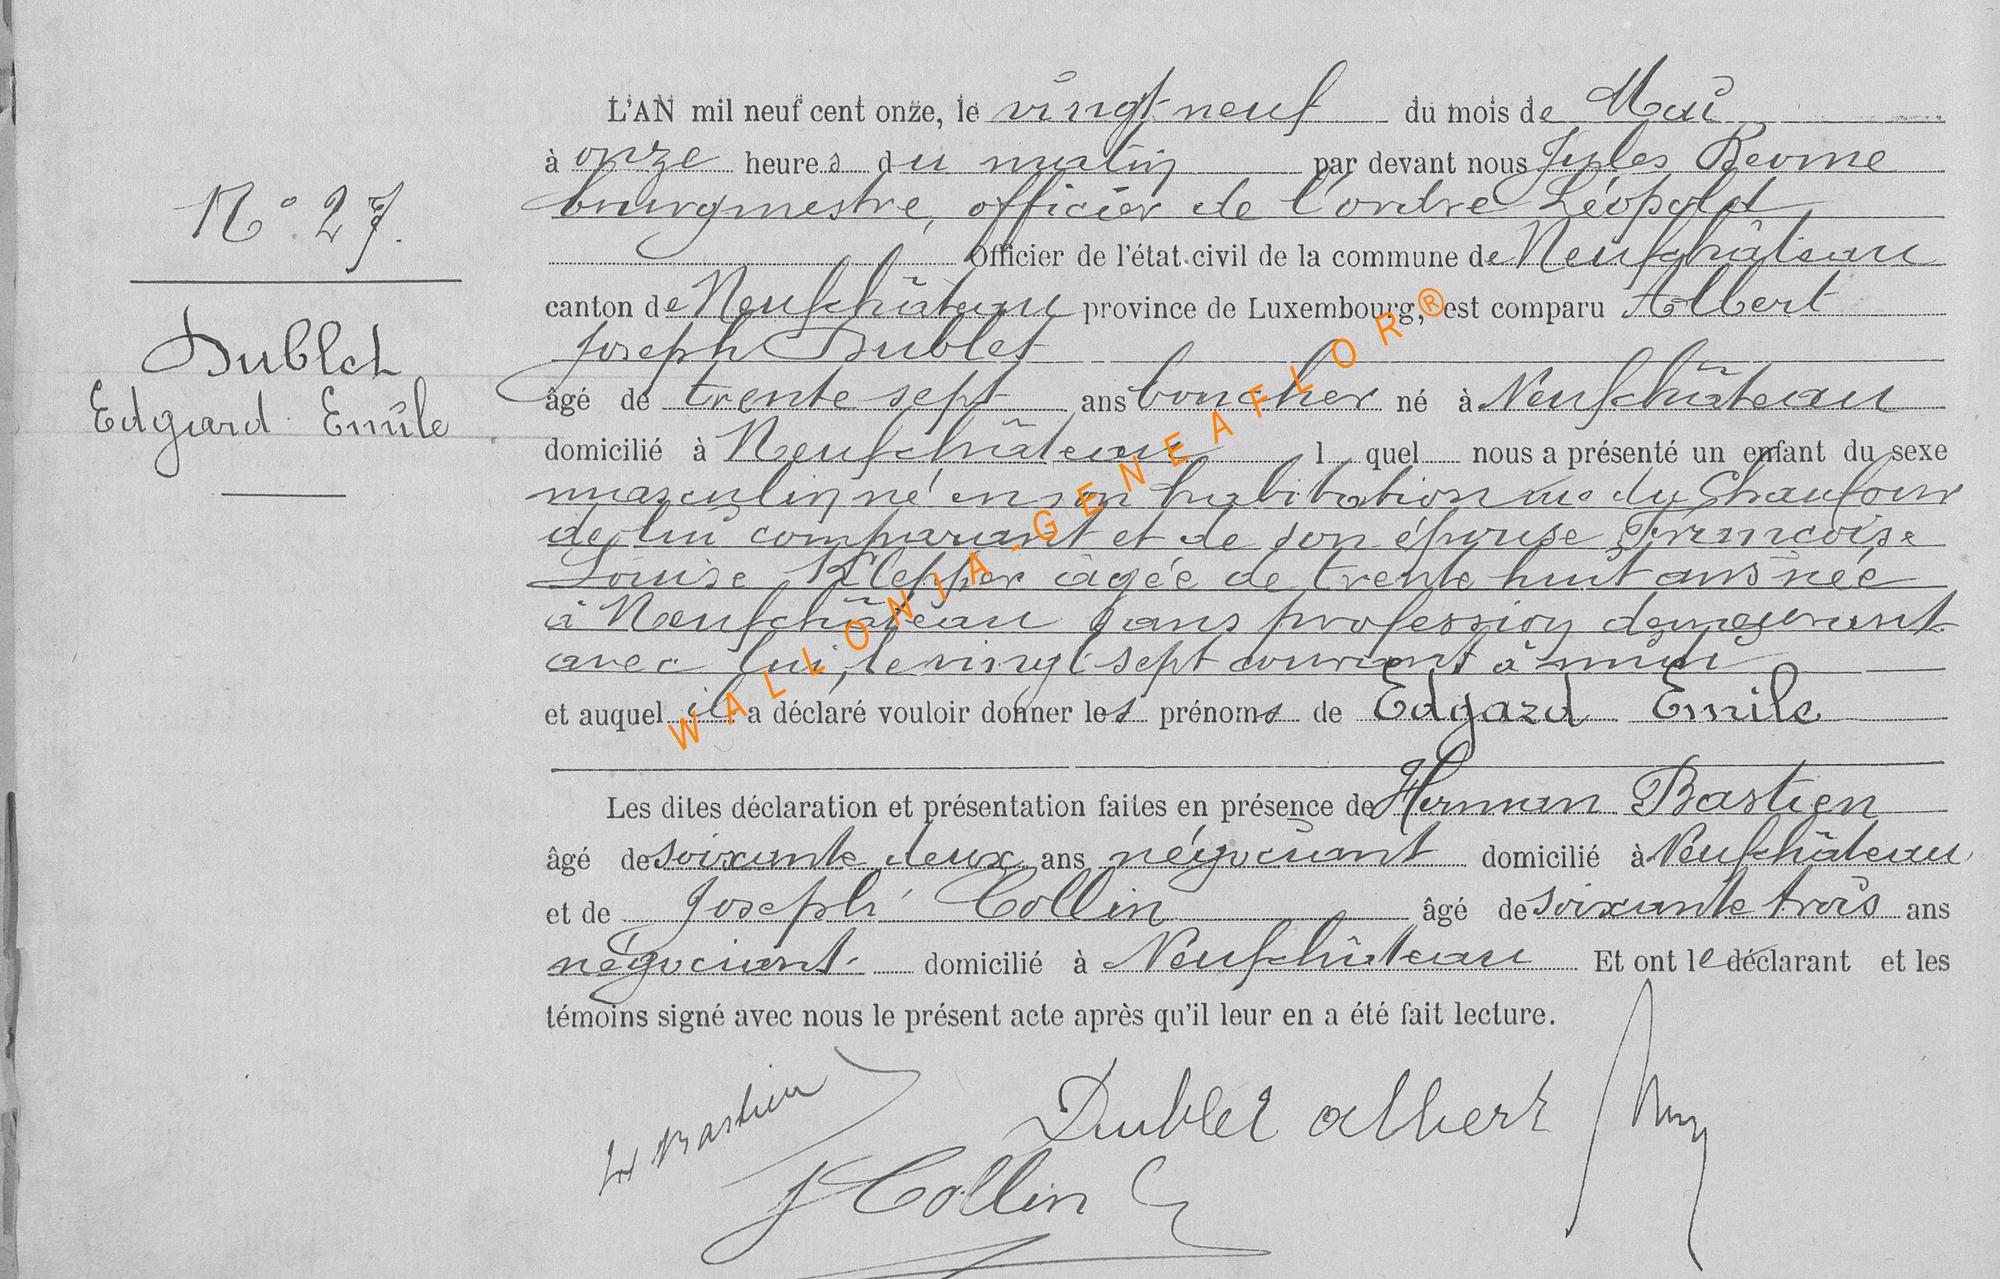 N° 27.
Dublet
Edgard Emile
L'AN mil neuf cent onze, le vingt neuf du mois de Mai
à onze heures du matin par devant nous Jules
bourgmestre, officier de l'ordre Léopold
Officier de l'état civil de la commune de Neufchâteau
canton de Neufchâteau province de Luxembourg, est comparu Albert
Joseph Dublet
âgé de trente sept ans boucher né à Neufchâteau
domicilié à Neufchâteau lequel nous a présenté un enfant du sexe
masculin né en son habitation rue du Chaufour
de lui comparant et de son épouse Françoise
Louise Klepper âgée de trente huit ans née
à Neufchâteau sans profession demeurant
avec lui, le vingt sept courant à midi
et auquel il a déclaré vouloir donner les prénoms de Edgard Emile
Les dites déclaration et présentation faites en présence de Herman Bastien
âgé de soixante deux ans négociant domicilié à Neufchâteau
et de Joseph Collin âgé de soixante trois ans
négociant domicilié à Neufchâteau Et ont le déclarant et les
témoins signé avec nous le présent acte après qu'il leur en a été fait lecture.
H Bastien
Dublet albert
J Collin
WALLONIA-GENEAFLOR®